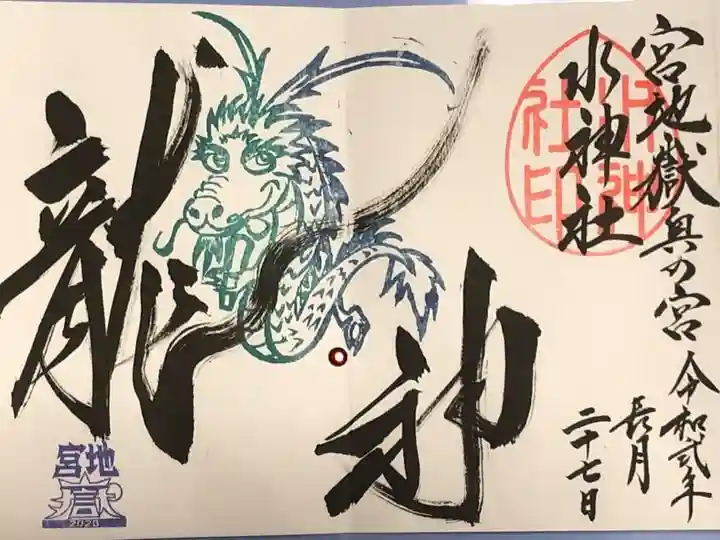 宮地嶽奥の宮
令和弐年
長月
二十七日
水神社
水神社印
龍神
宮地
嶽
2020